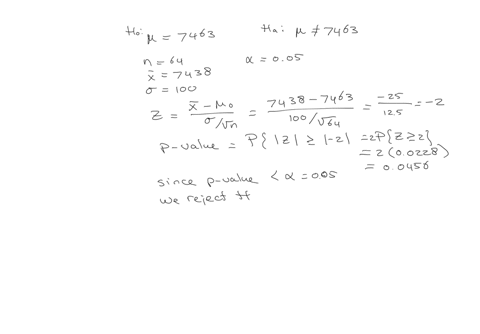 H₀: μ = 7463 Hₐ: μ ≠ 7463
n = 64 α = 0.05
x̄ = 7438
σ = 100
Z = (x̄ − μ₀)/(σ/√n) = (7438 − 7463)/(100/√64) = −25/12.5 = −2
p-value = P{ |Z| ≥ |-2| = 2P{Z ≥ 2}
= 2 (0.0228)
= 0.0456
since p-value < α = 0.05
we reject H